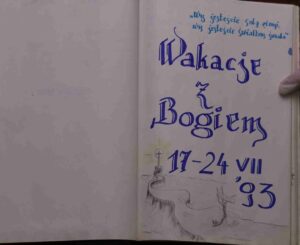 "Wy jesteście solą ziemi,
wy jesteście światłem świata"
Wakacje
z
Bogiem
17-24 VII
'93